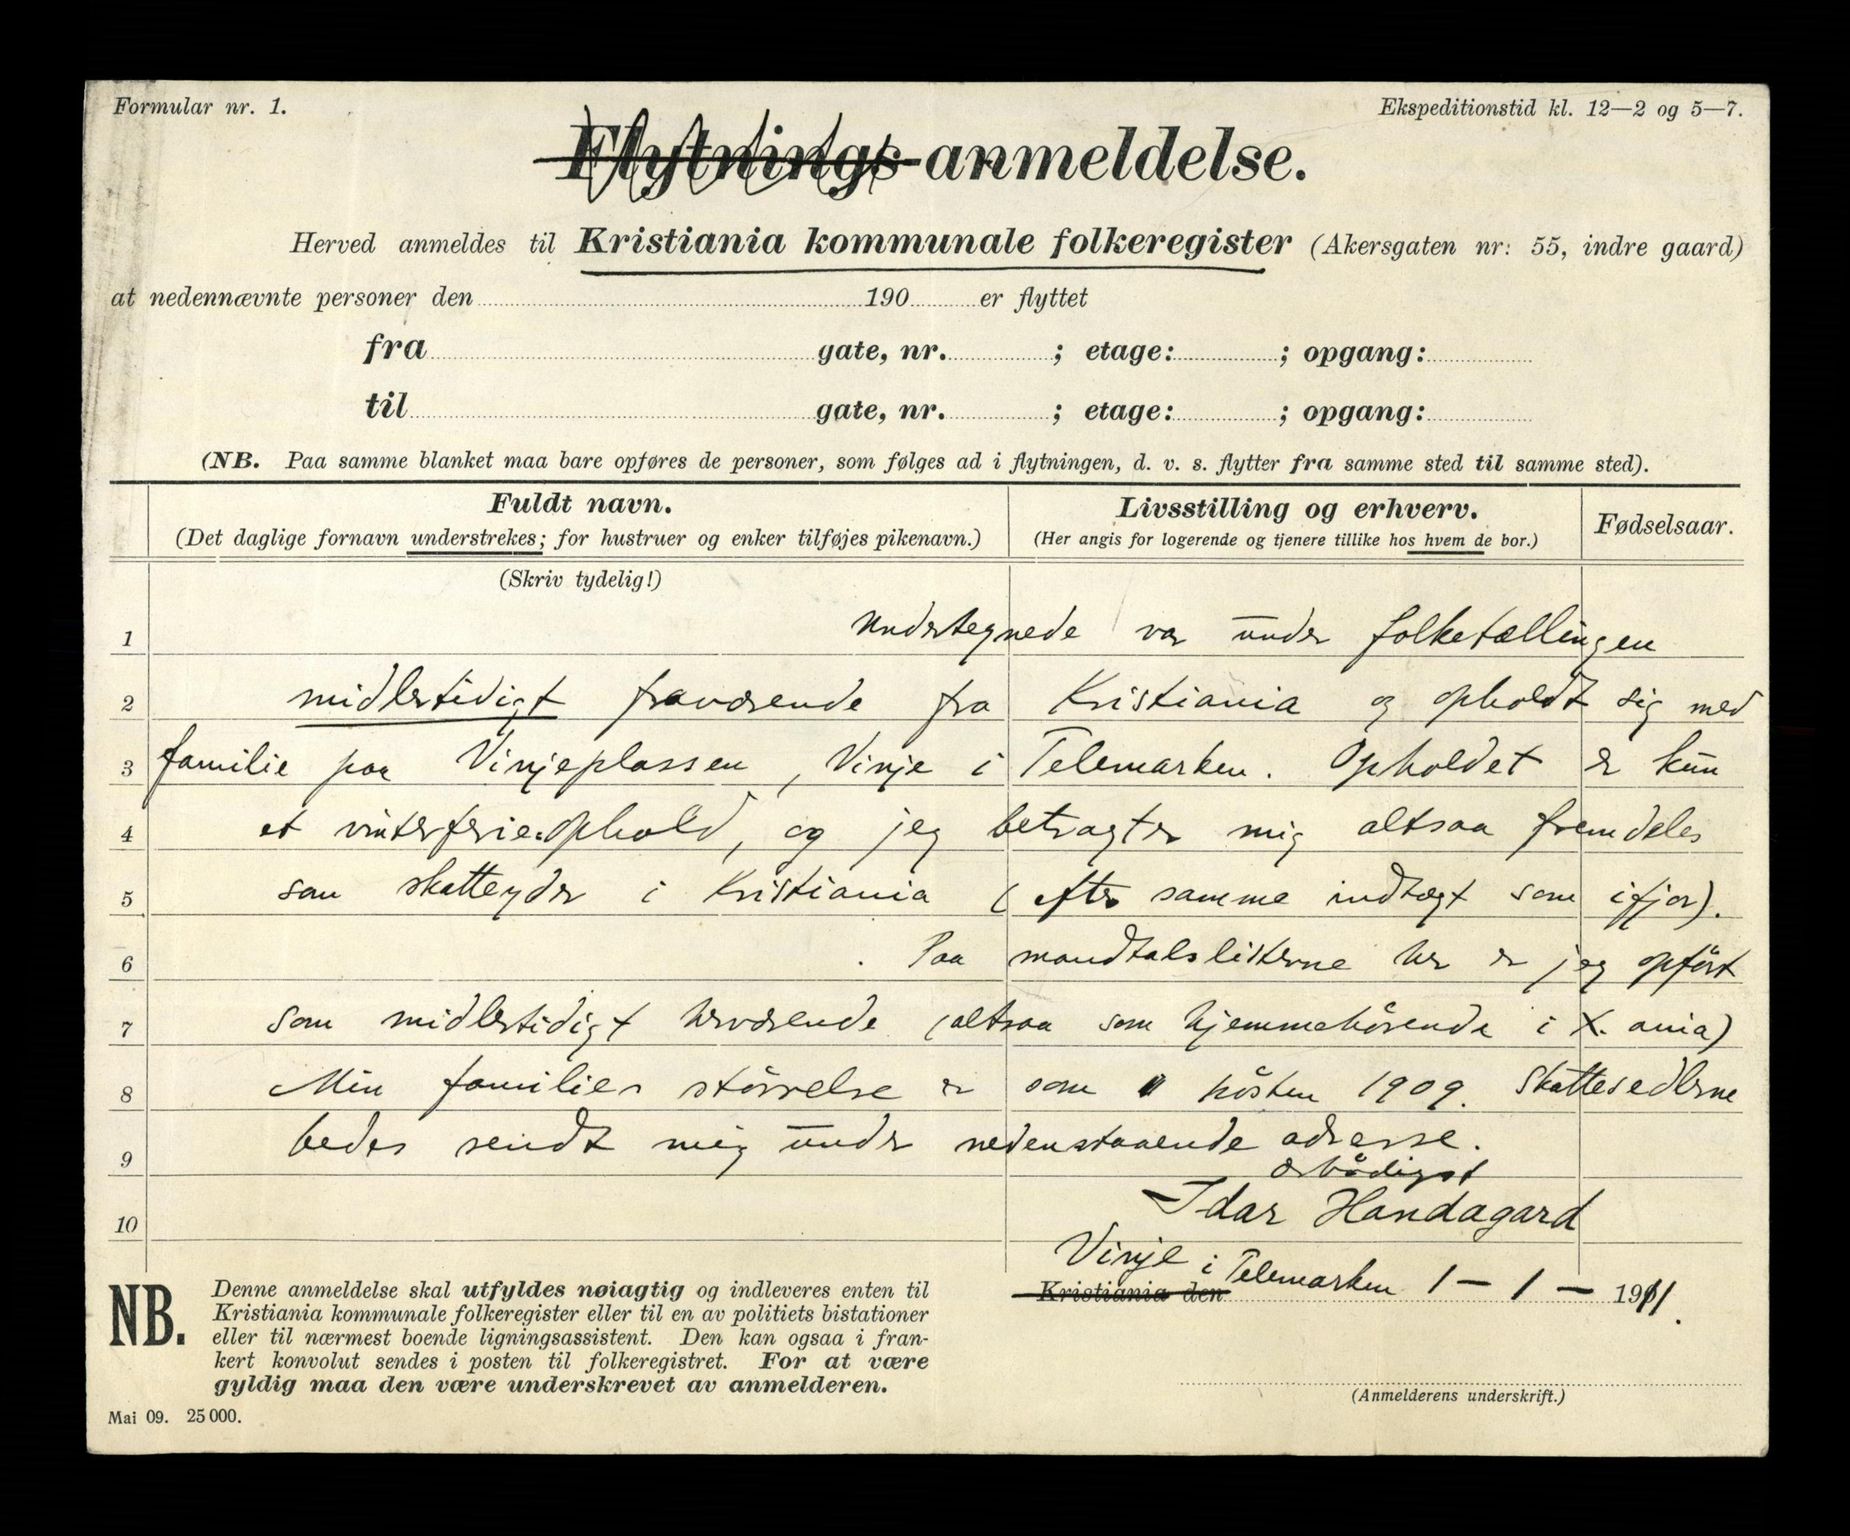 Formular nr. 1.
Ekspeditionstid kl. 12—2 og 5—7.
Flytnings-anmeldelse.
Herved anmeldes til Kristiania kommunale folkeregister (Akersgaten nr: 55, indre gaard)
at nedennævnte personer den 190 er flyttet
fra gate, nr. ; etage: ; opgang:
til gate, nr. ; etage: ; opgang:
(NB. Paa samme blanket maa bare opføres de personer, som følges ad i flytningen, d. v. s. flytter fra samme sted til samme sted).
Fuldt navn.
(Det daglige fornavn understrekes; for hustruer og enker tilføjes pikenavn.)
Livsstilling og erhverv.
(Her angis for logerende og tjenere tillike hos hvem de bor.)
Fødselsaar.
(Skriv tydelig!)
1 Undertegnede var under folketællingen
2 midlertidigt fraværende fra Kristiania og opholdt sig med
3 familie paa Vinjeplassen, Vinje i Telemarken. Opholdet er kun
4 et vinterferie-ophold, og jeg betragter mig altsaa fremdeles
5 som skatteyder i Kristiania (efter samme indtægt som ifjor).
6 Paa mandtalslisterne her er jeg opført
7 som midlertidigt herværende (altsaa som hjemmehörende i X.ania)
8 Min families störrelse er som hösten 1909. Skattesedlerne
9 bedes sendt mig under nedenstaaende adresse.
ærbödigst
10 Idar Handagard
Vinje i Telemarken 1 — 1 — 1911.
Kristiania den
NB. Denne anmeldelse skal utfyldes nøiagtig og indleveres enten til
Kristiania kommunale folkeregister eller til en av politiets bistationer
eller til nærmest boende ligningsassistent. Den kan ogsaa i fran-
kert konvolut sendes i posten til folkeregistret. For at være
gyldig maa den være underskrevet av anmelderen.
(Anmelderens underskrift.)
Mai 09. 25 000.